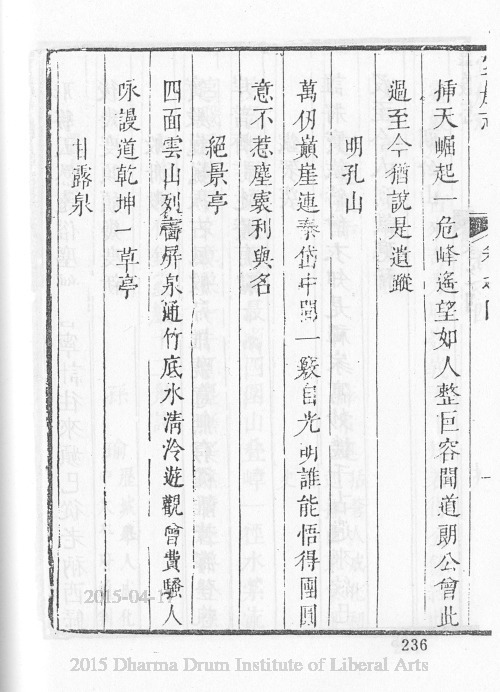 揷天崛起一危峰遙望如人整巨容聞道朗公曾此
過至今猶說是遺蹤
明孔山
萬仞巔崖連泰岱中間一竅自光明誰能悟得團圓
意不惹塵寰利與名
絕景亭
四面雲山列畫屏泉通竹底水淸泠遊觀曾費騷人
咏謾道乾坤一草亭
甘露泉
2015-04-17
236
2015 Dharma Drum Institute of Liberal Arts